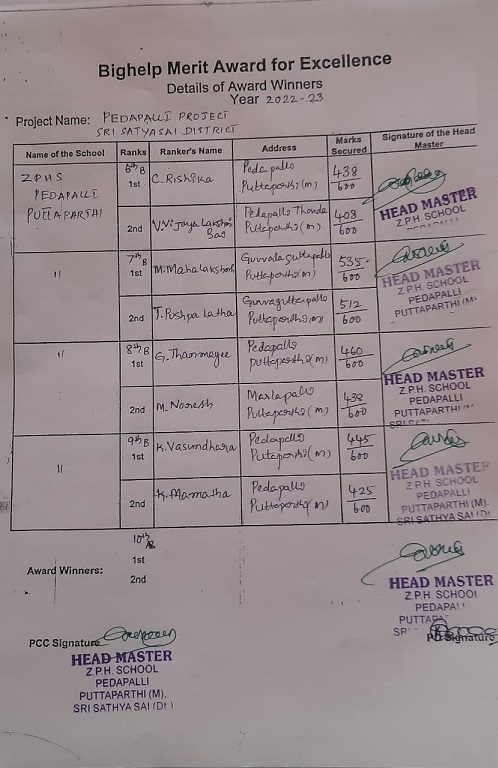 Bighelp Merit Award for Excellence
Details of Award Winners
Year 2022-23
Project Name: PEDAPALLI PROJECT
SRI SATYASAI DISTRICT
Name of the School Ranks Ranker's Name Address Marks Secured Signature of the Head Master
ZPHS
PEDAPALLI
PUTTAPARTHI
6th B
1st C. Rishika Pedapalli
Puttaparthi(m) 438/600
HEAD MASTER
Z.P.H. SCHOOL
2nd V.V. Jaya Lakshmi Bai Pedapalli Thanda
Puttaparthi(m) 408/600
11 7th B
1st M. Mahalakshmi Guvvalaguttapalli
Puttaparthi(m) 535/600
HEAD MASTER
Z.P.H. SCHOOL
PEDAPALLI
PUTTAPARTHI (M)
2nd T. Pushpa Latha Guvvaguttapalli
Puttaparthi(m) 512/600
11 8th B
1st G. Thanmayee Pedapalli
Puttaparthi(m) 460/600
HEAD MASTER
Z.P.H. SCHOOL
PEDAPALLI
PUTTAPARTHI
2nd M. Noresh Marlapalli
Puttaparthi(m) 438/600
11 9th B
1st K. Vasundhara Pedapalli
Puttaparthi(m) 445/600
HEAD MASTER
Z.P.H. SCHOOL
PEDAPALLI
PUTTAPARTHI (M)
SRI SATHYA SAI (Dt)
2nd K. Mamatha Pedapalli
Puttaparthi(m) 425/600
10th
1st
Award Winners:
2nd
HEAD MASTER
Z.P.H. SCHOOL
PCC Signature
PD Signature
HEAD MASTER
Z.P.H. SCHOOL
PEDAPALLI
PUTTAPARTHI (M),
SRI SATHYA SAI (Dt)